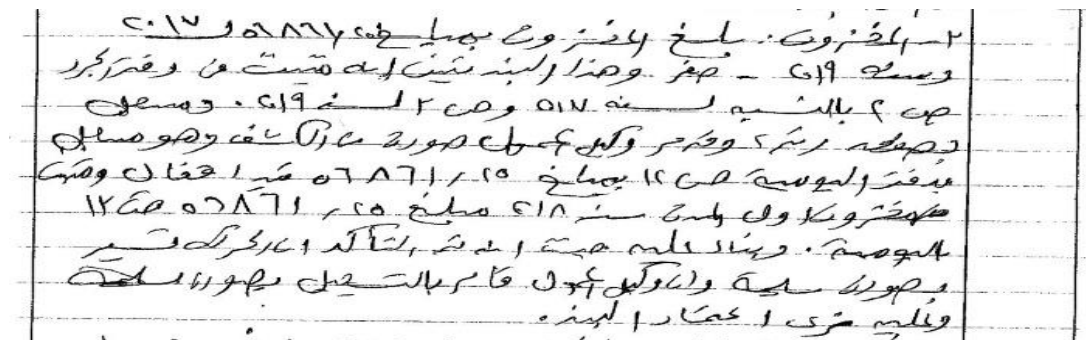 ٢- المخزون: بلغ المخزون بمبلغ ٥٦٨٦١,٢٥ لـ ٢٠١٧
وسنة ٢٠١٩ - صفر وهذا البند تبين أنه مثبت في دفتر الجرد
ص ٢ بالنسبة لسنة ٢٠١٧ وص ٢ لسنة ٢٠١٩. ومسجل
بصفحة رقم ٢ وقدم وكيل الممول صورة من الكشف وهو مسجل
بدفتر اليومية ص ١٢ بمبلغ ٥٦٨٦١,٢٥ قيد اقفال ومثبت
مخزون اول المدة سنة ٢٠١٨ مبلغ ٥٦٨٦١,٢٥ ص ١٢
اليومية. وبناء عليه حيث انه تم التأكد ان الحركة تسير
بصورة سليمة وان وكيل الممول قام بالتسجيل بصورة سليمة
وعليه نرى اعتماد البند.